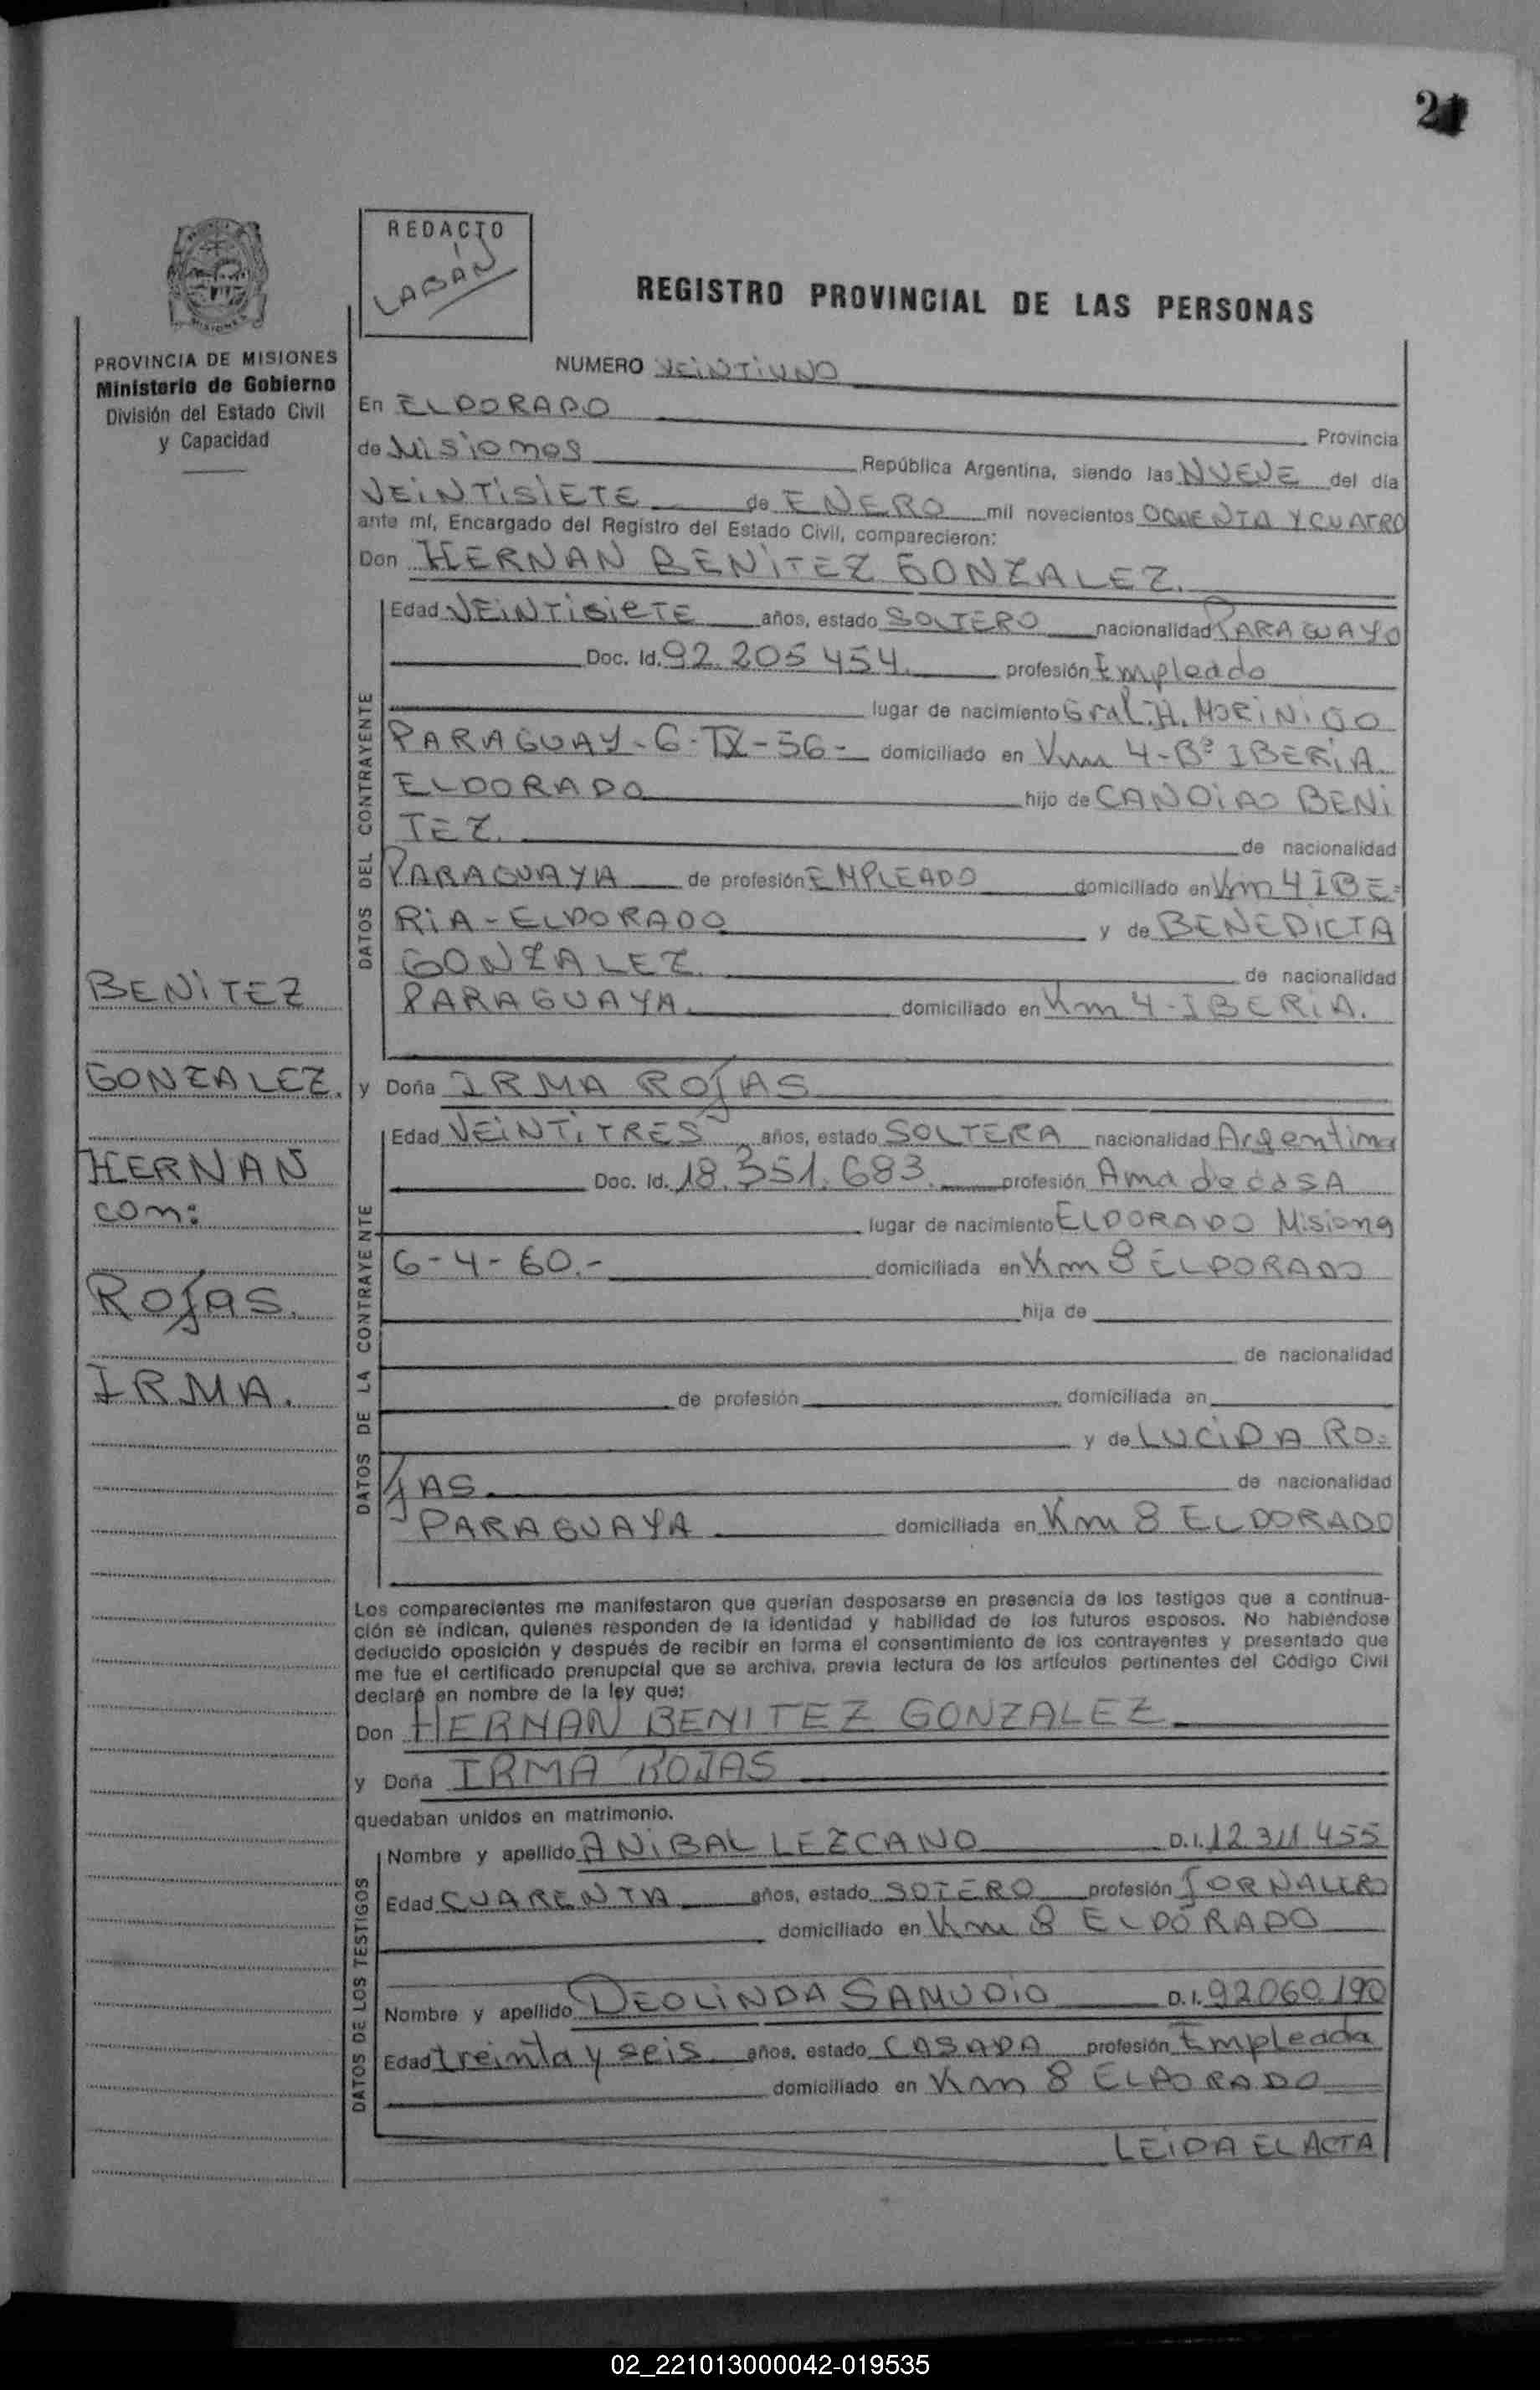 21
REDACTO
LABÁN
REGISTRO PROVINCIAL DE LAS PERSONAS
PROVINCIA DE MISIONES
Ministerio de Gobierno
División del Estado Civil
y Capacidad
NUMERO VEINTIUNO
En ELDORADO Provincia
de Misiones República Argentina, siendo las NUEVE del día
VEINTISIETE de ENERO mil novecientos OCHENTA Y CUATRO
ante mí, Encargado del Registro del Estado Civil, comparecieron:
Don HERNAN BENITEZ GONZALEZ.
DATOS DEL CONTRAYENTE
Edad VEINTISIETE años, estado SOLTERO nacionalidad PARAGUAYO
Doc. Id. 92.205454. profesión Empleado
lugar de nacimiento Gral. H. MORINIGO
PARAGUAY-6-IX-56- domiciliado en Km 4-Bº IBERIA
ELDORADO hijo de CANDIDO BENI
TEZ. de nacionalidad
PARAGUAYA de profesión EMPLEADO domiciliado en Km 4 IBE=
RIA-ELDORADO y de BENEDICTA
GONZALEZ. de nacionalidad
PARAGUAYA. domiciliado en Km 4-IBERIA.
BENITEZ
GONZALEZ.
HERNAN
con:
Rojas.
IRMA.
y Doña IRMA ROJAS
DATOS DE LA CONTRAYENTE
Edad VEINTITRES años, estado SOLTERA nacionalidad Argentina
Doc. Id. 18.351.683. profesión Ama de casa
lugar de nacimiento ELDORADO Misiones
6-4-60.- domiciliada en Km 8 ELDORADO
hija de
de nacionalidad
de profesión domiciliada en
y de LUCIDA RO=
JAS. de nacionalidad
PARAGUAYA domiciliada en Km 8 ELDORADO
Los comparecientes me manifestaron que querían desposarse en presencia de los testigos que a continua-
ción se indican, quienes responden de la identidad y habilidad de los futuros esposos. No habiéndose
deducido oposición y después de recibir en forma el consentimiento de los contrayentes y presentado que
me fue el certificado prenupcial que se archiva, previa lectura de los artículos pertinentes del Código Civil
declaré en nombre de la ley que:
Don HERNAN BENITEZ GONZALEZ
y Doña IRMA ROJAS
quedaban unidos en matrimonio.
DATOS DE LOS TESTIGOS
Nombre y apellido ANIBAL LEZCANO D.I. 12.311.455
Edad CUARENTA años, estado SOTERO profesión JORNALERO
domiciliado en Km 8 ELDORADO
Nombre y apellido DEOLINDA SAMUDIO D.I. 92.060.190
Edad treinta y seis años, estado CASADA profesión Empleada
domiciliado en Km 8 ELDORADO
LEIDA EL ACTA
02_221013000042-019535